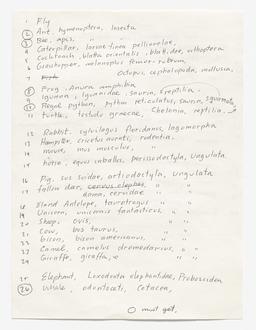 1 Fly
2 Ant, hymenoptera, insecta
3 Bee, apes, "
4 Caterpillar, larvae tinea pellionelae,
5 Cockroach, blatta orientalis, blattidae, orthoptera
6 Grasshopper, melanoplus femur-rubrum,
7 Octopus, cephalopoda, mollusca,
8 Frog, Anura amphibia
9 iguana, iguanidae, sauria, reptilia
10 Regal python, python reticulatus, sauria, squamata
11 turtle, testudo graecae, Chelonia, reptilia
12 Rabbit, sylvilagus floridanus, lagomorpha
13 Hampster, cricetus, rodentia.
14 mouse, mus musculus, "
15 horse, equus caballus, perissodactyla, Ungulata
16 Pig, sus suidae, artiodactyla, ungulata
17 fallow deer, cervus elaphus, " "
dama, cervidae
18 Eland Antelope, taurotragus " "
19 Unicorn, unicornis fantasticus, " "
20 Sheep, ovis, " "
21 Cow, bos taurus, " "
22 bison, bison americanus, " "
23 Camel, camelus dromedarius, " "
24 Giraffe, giraffa, " "
25 Elephant, Loxodonta elephantidae, Proboscidea
26 Whale, odontoceti, Cetacea,
O must get,